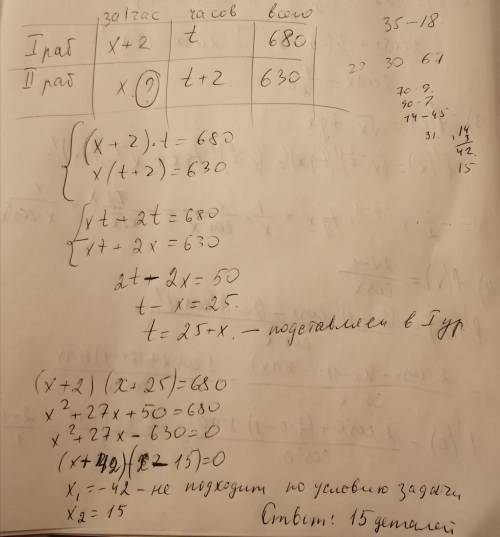 за 1 час часов всего
I раб x+2 t 680
II раб x ? t+2 630
35-18
30 67
14-45
31.
14
3
42
15
{(x+2)·t=680
x(t+2)=630
{xt+2t=680
xt+2x=630
2t-2x=50
t-x=25.
t=25+x. - подставляем в I ур
(x+2)(x+25)=680
x²+27x+50=680
x²+27x-630=0
(x+42)(x-15)=0
x₁=-42 - не подходит по условию задачи
x₂=15
Ответ: 15 деталей